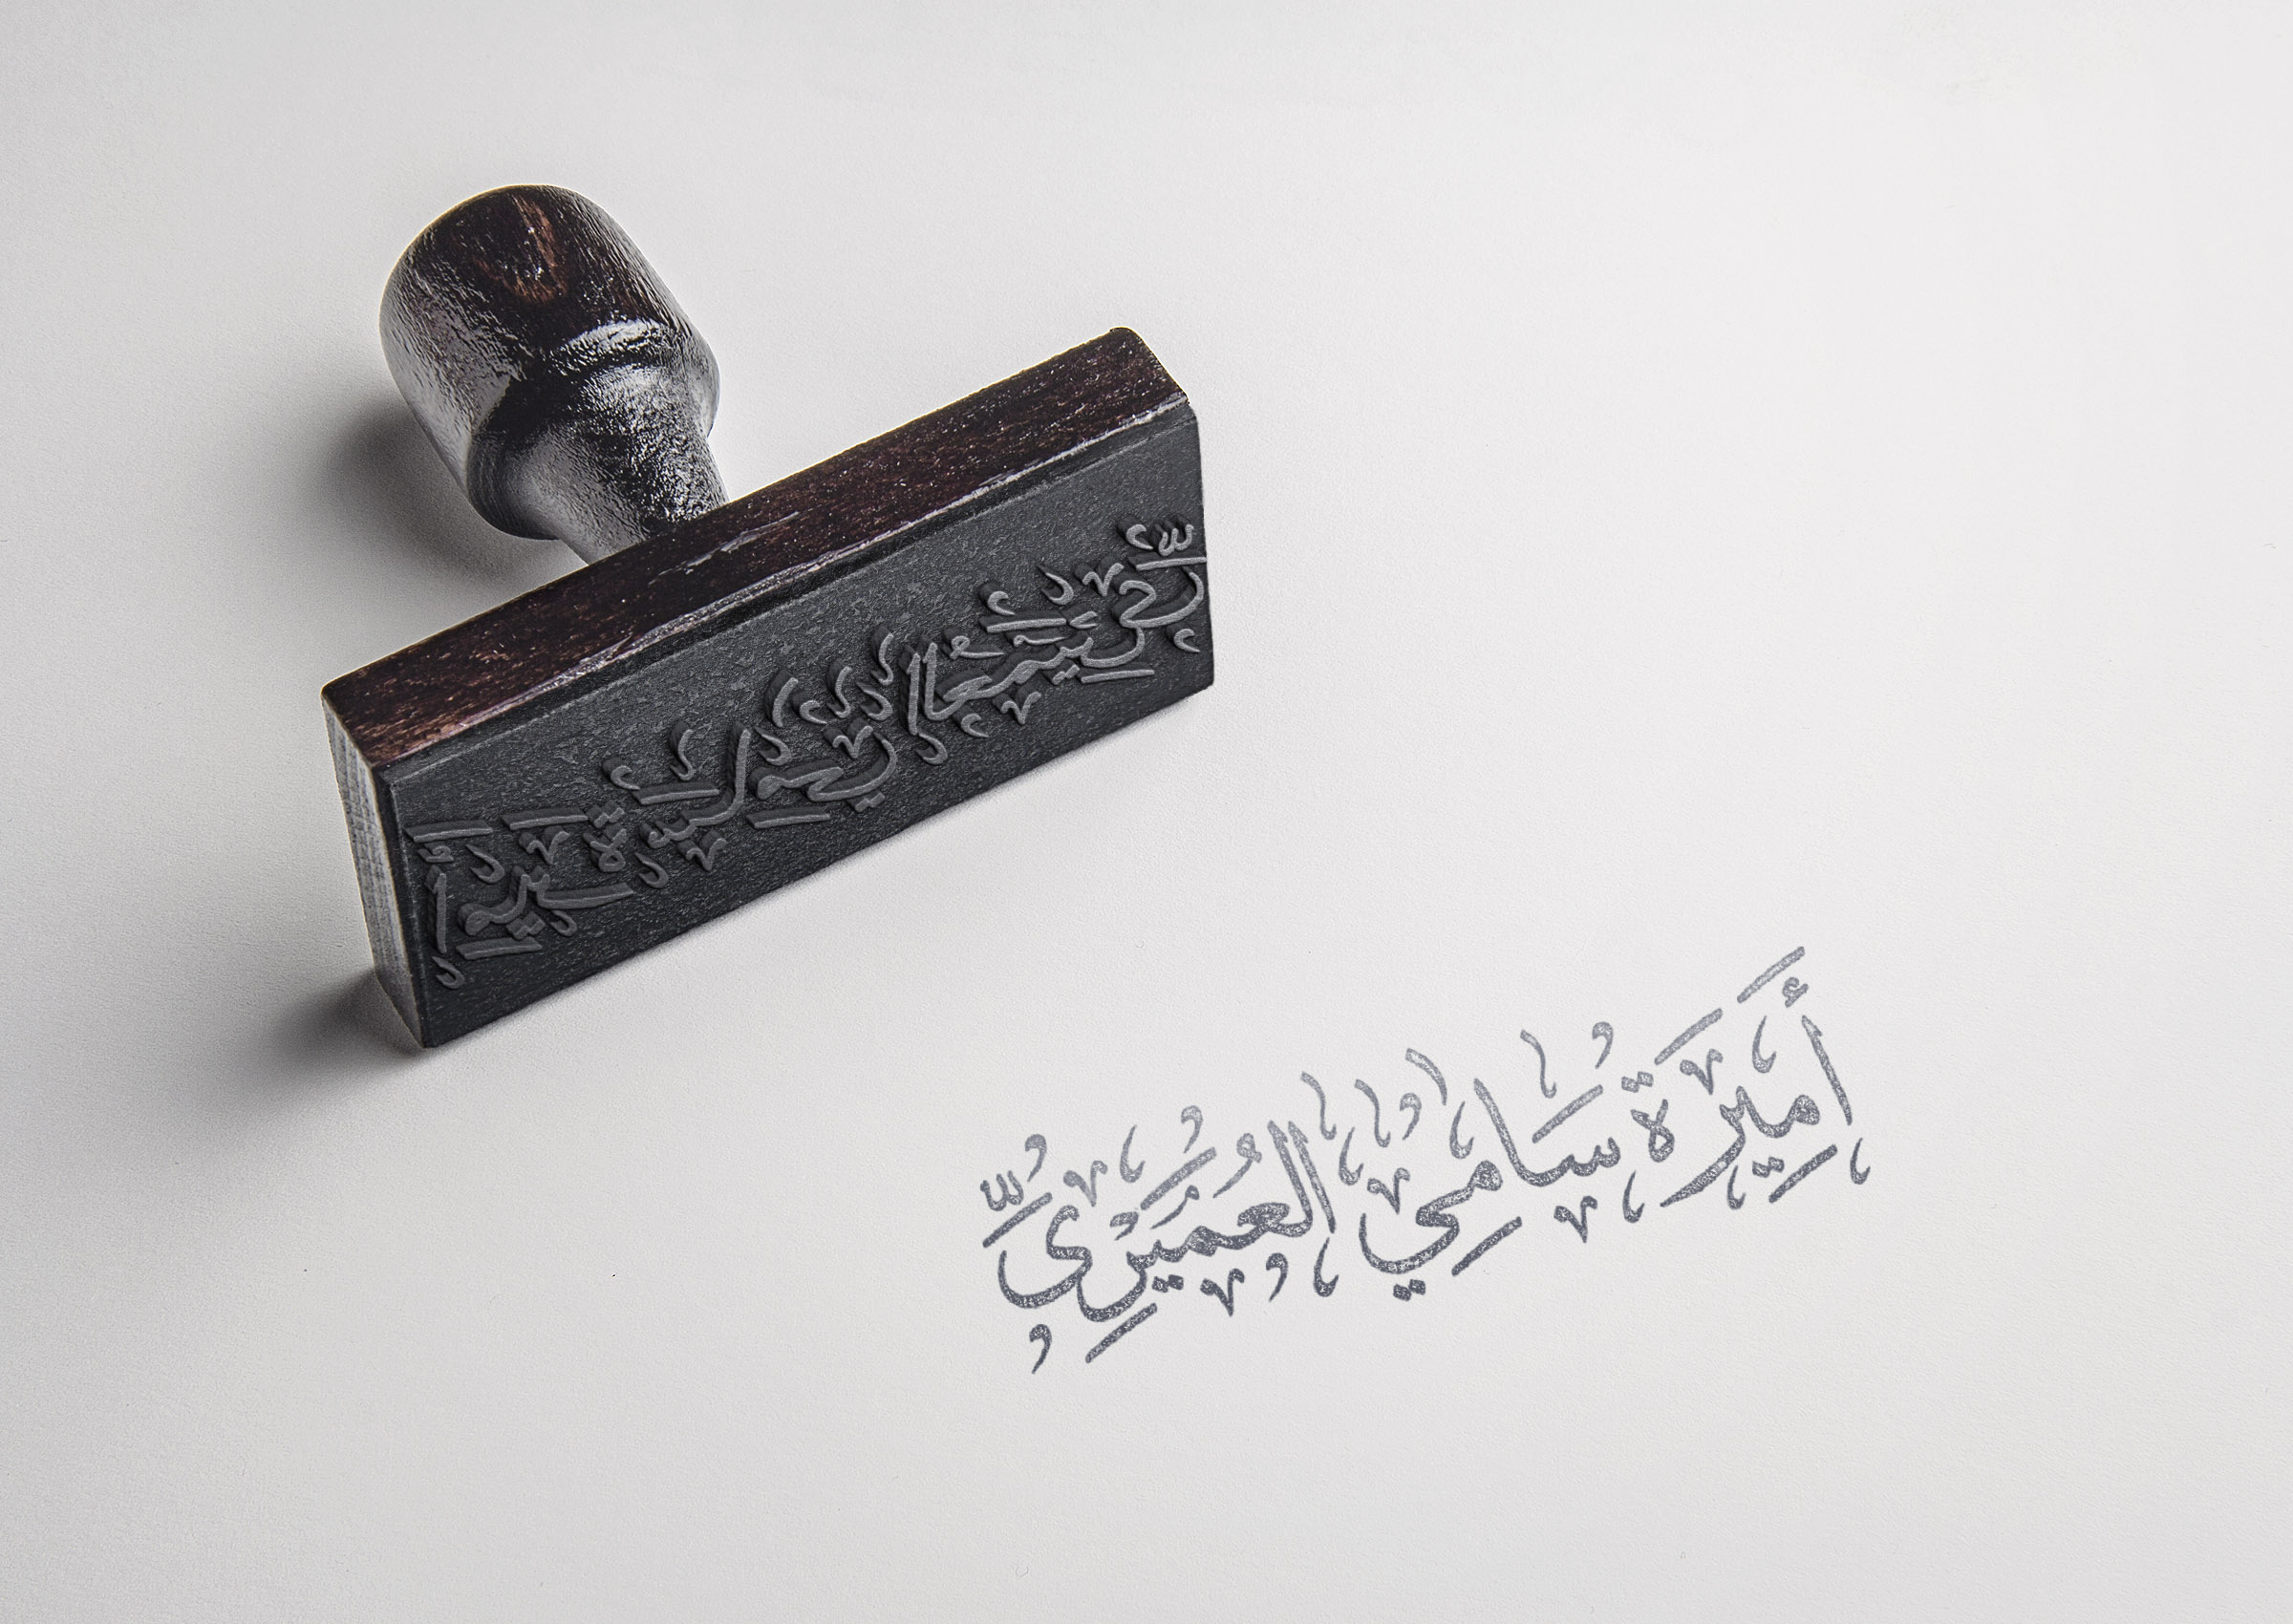 أَمِيرَة سَامِي العُمَيْرِيّ